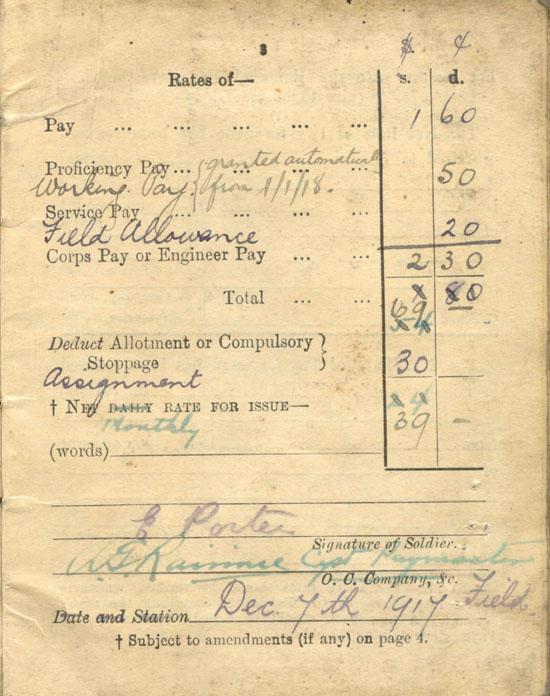 3
$ ¢
Rates of— s. d.
Pay ... ... ... ... 1 60
Proficiency Pay... { granted automatically
Working Pay } from 1/1/18. 50
Service Pay ... ... ...
Field Allowance 20
Corps Pay or Engineer Pay ... ... 2 30
Total ... ... 80
69
54
Deduct Allotment or Compulsory }
Stoppage 30
Assignment
† NET DAILY RATE FOR ISSUE— 24
Monthly 39 –
(words)
E Porter
Signature of Soldier.
Capt Paymaster
O. C. Company, &c.
Date and Station Dec. 7th 1917 Field.
† Subject to amendments (if any) on page 4.